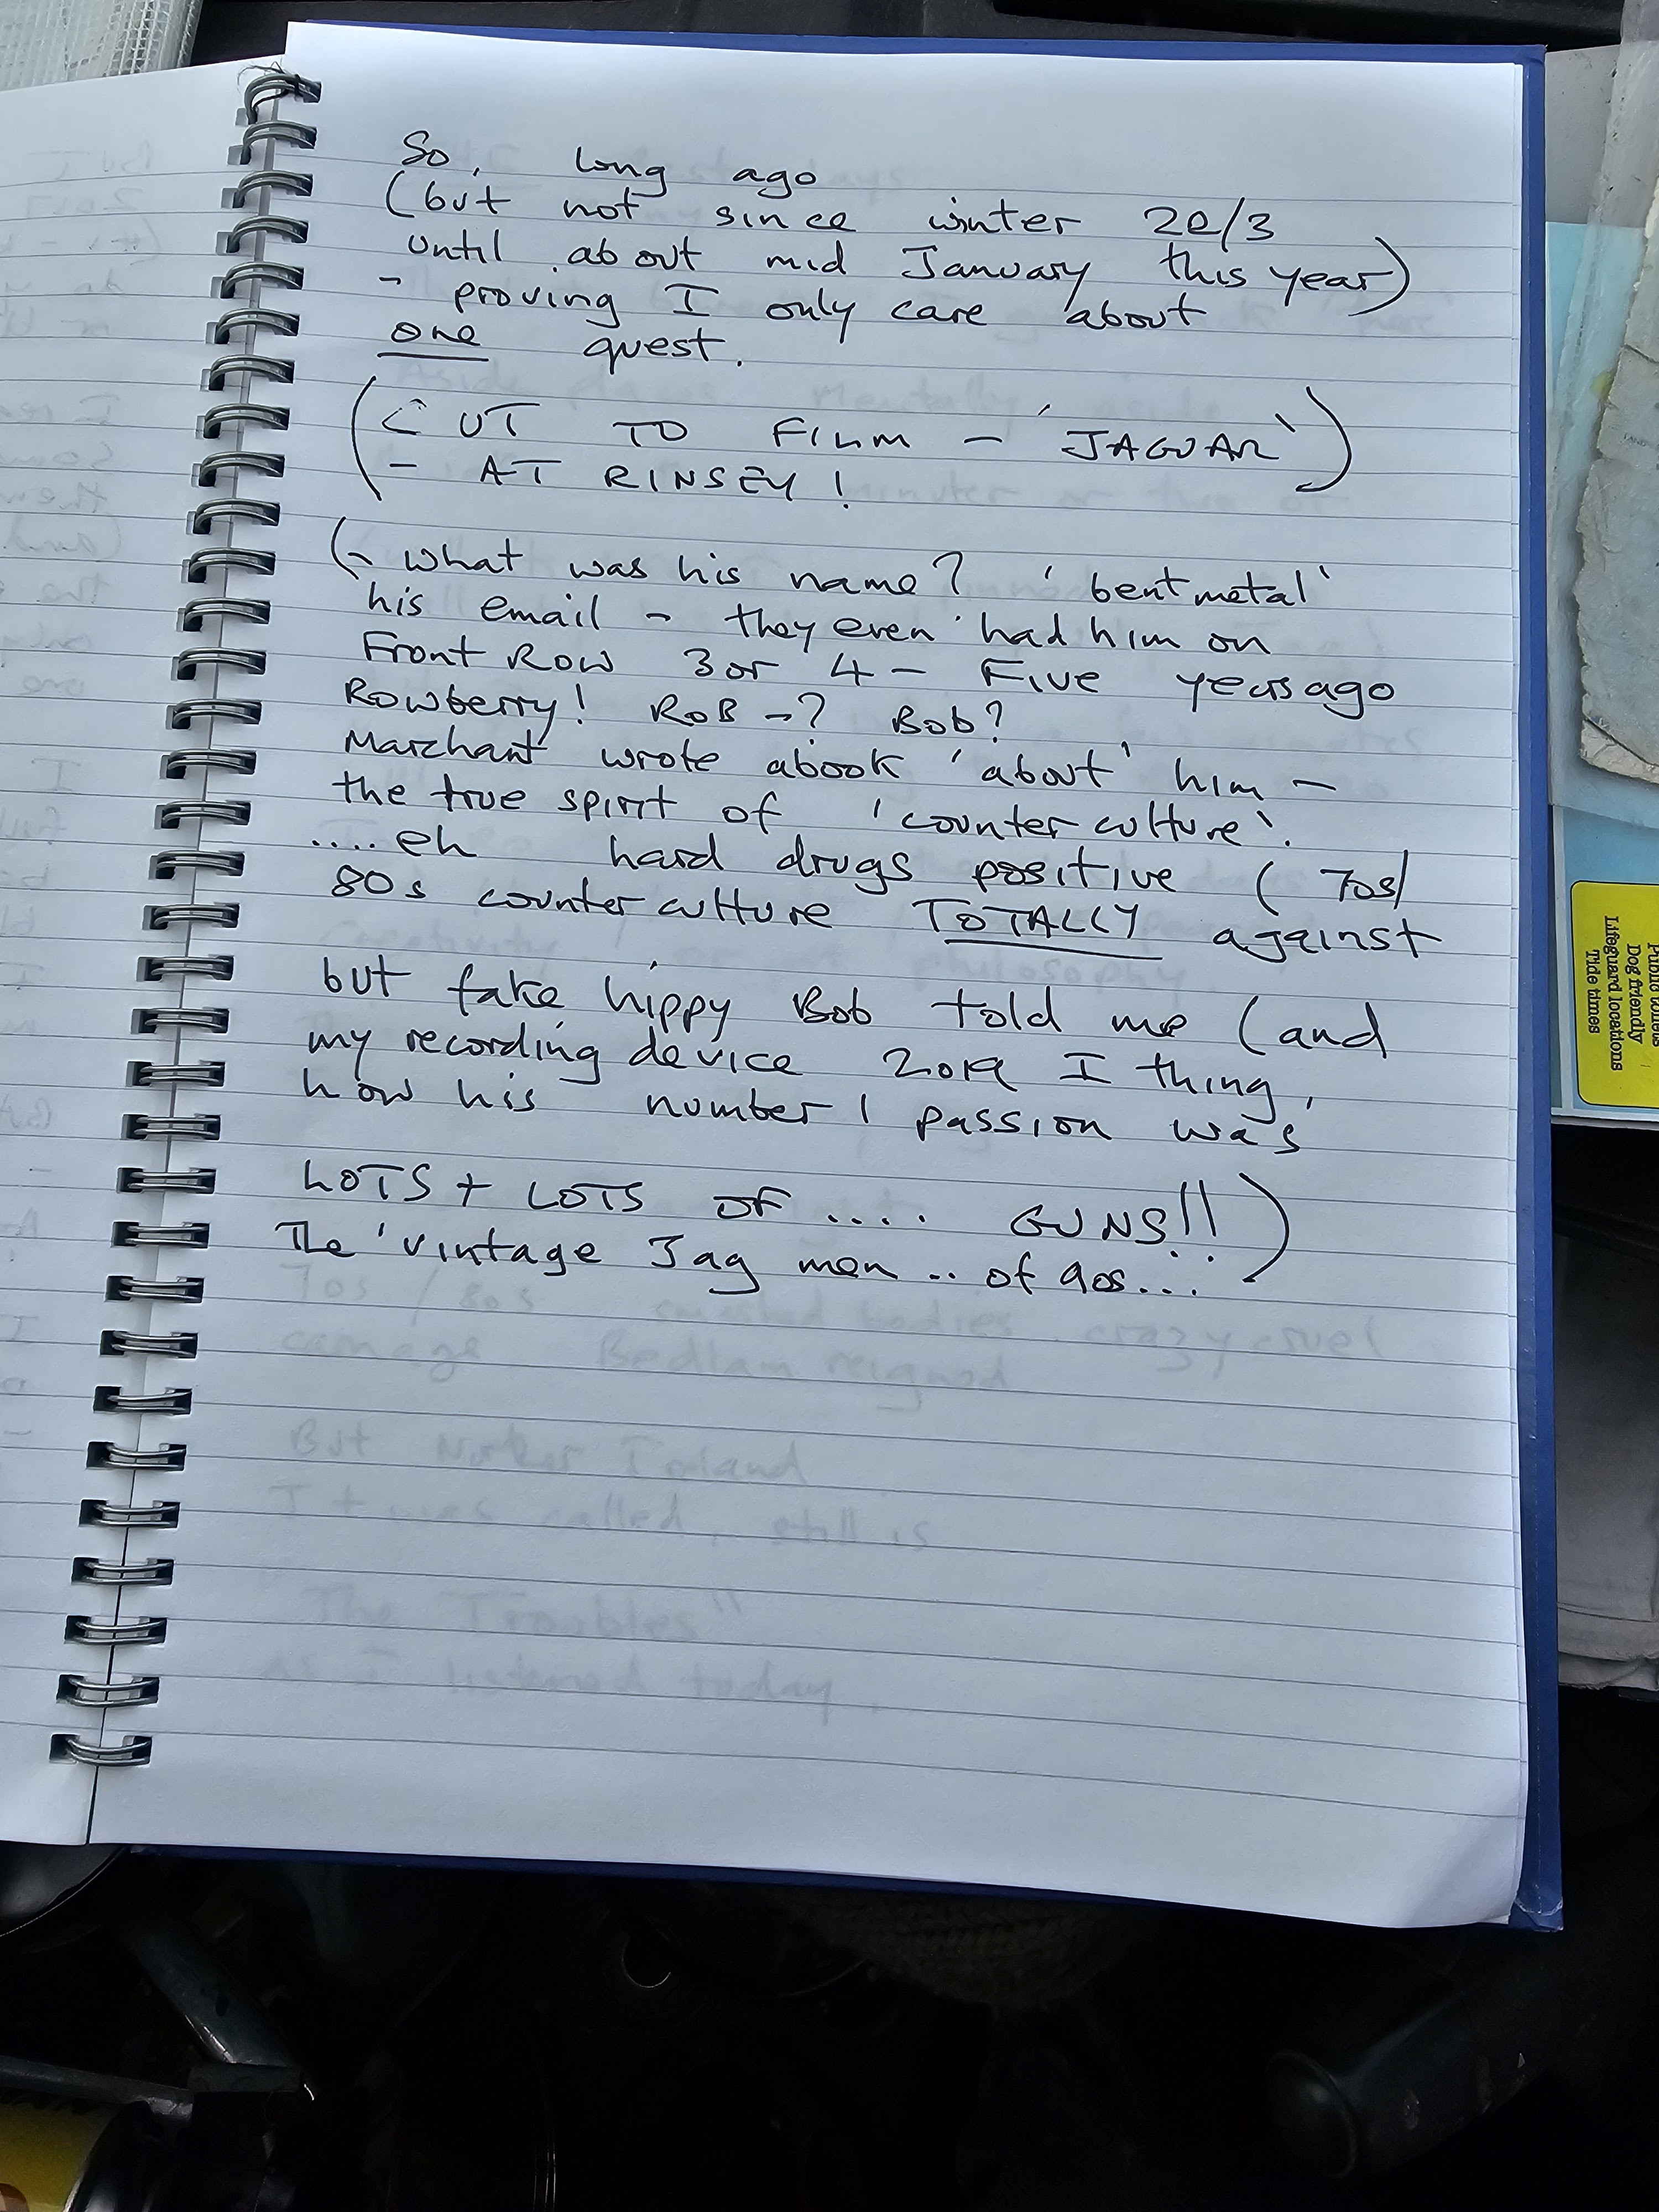 So, long ago
(but not since winter 22/3
until about mid January this year)
- proving I only care about
one quest.
(CUT TO FILM - 'JAGUAR')
- AT RINSEY!
(- what was his name? 'bentmetal'
his email - they even had him on
Front Row 3 or 4 - Five years ago
Rowberry! ROB -? Bob?
Marchant wrote a book 'about' him -
the true spirit of 'counter culture'.
....eh hard drugs positive (70s/
80s counter culture TOTALLY against
but fake hippy Bob told me (and
my recording device 2019 I thing,
how his number 1 passion was
LOTS + LOTS OF .... GUNS!!)
The 'vintage Jag men .. of 90s...
Dog friendly
Lifeguard locations
Tide times